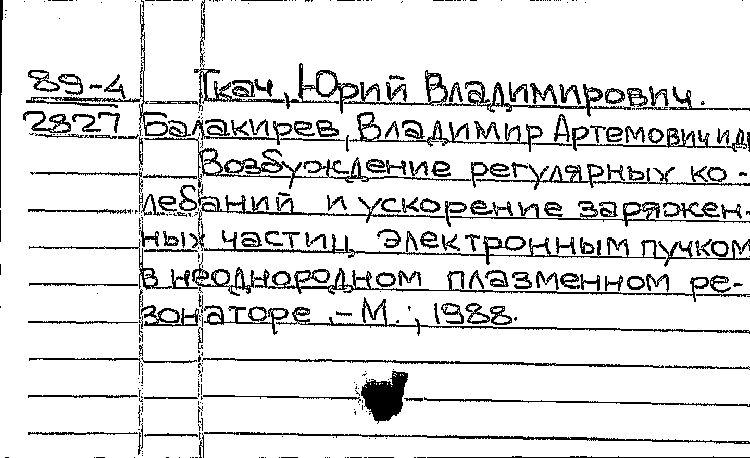 89-4 Ткач, Юрий Владимирович.
2827 Балакирев, Владимир Артемович и др
Возбуждение регулярных ко-
лебаний и ускорение заряжен-
ных частиц электронным пучком
в неоднородном плазменном ре-
зонаторе .- М.:, 1988.